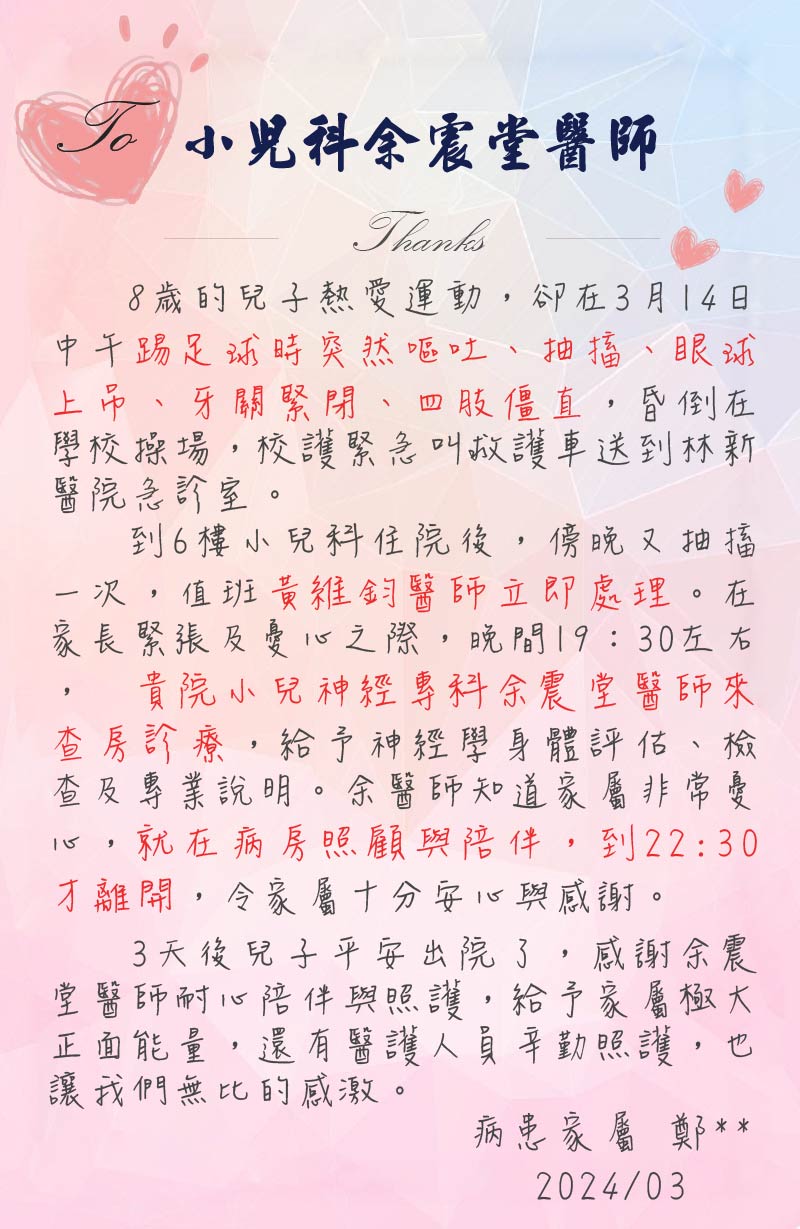 To 小兒科余震堂醫師
Thanks
8歲的兒子熱愛運動，卻在3月14日
中午踢足球時突然嘔吐、抽搐、眼球
上吊、牙關緊閉、四肢僵直，昏倒在
學校操場，校護緊急叫救護車送到林新
醫院急診室。
到6樓小兒科住院後，傍晚又抽搐
一次，值班黃維鈞醫師立即處理。在
家長緊張及憂心之際，晚間19：30左右
， 貴院小兒神經專科余震堂醫師來
查房診療，給予神經學身體評估、檢
查及專業說明。余醫師知道家屬非常憂
心，就在病房照顧與陪伴，到22:30
才離開，令家屬十分安心與感謝。
3天後兒子平安出院了，感謝余震
堂醫師耐心陪伴與照護，給予家屬極大
正面能量，還有醫護人員辛勤照護，也
讓我們無比的感激。
病患家屬 鄭**
2024/03